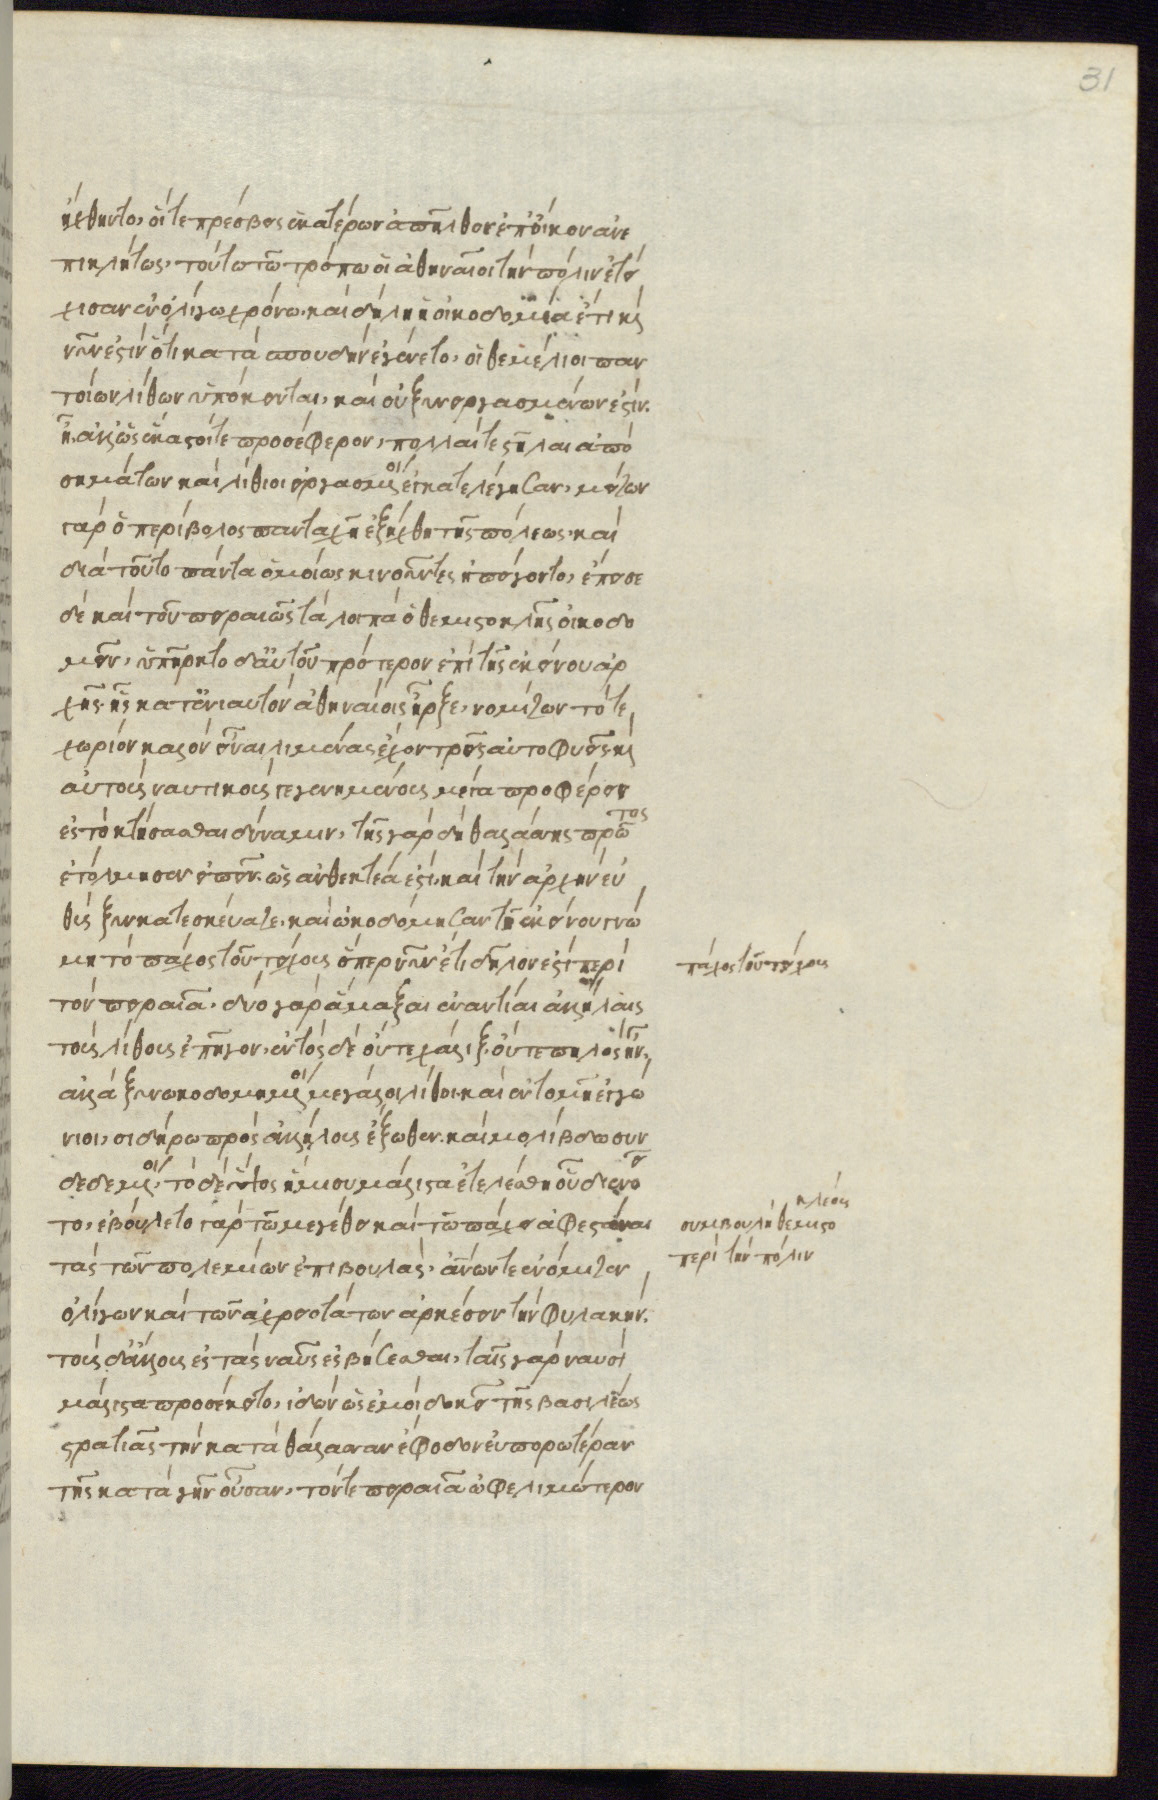 31
ήχθοντο, οἵ τε πρέσβεις ἑκατέρων ἀπῆλθον ἐπ᾽ οἴκου ἀνε
πικλήτως. τούτω τῶ τρόπω οἱ ἀθηναῖοι τὴν πόλιν ἐτεί
χισαν ἐν ὀλίγω χρόνω. καὶ δήλη ἡ οἰκοδομία ἔτι καὶ
νῦν ἐστὶν ὅτι κατὰ σπουδὴν ἐγένετο. οἱ θεμέλιοι παν
τοίων λίθων ὑπόκεινται, καὶ οὐ ξυνειργασμένων ἔστιν
ἧ. ἀλλ᾽ ὡς ἕκαστοί τε προσέφερον, πολλαί τε στῆλαι ἀπὸ
σημάτων καὶ λίθοι εἰργασμένοι ἐγκατελέγησαν. μείζων
γὰρ ὁ περίβολος πανταχῆ ἐξήχθη τῆς πόλεως. καὶ
διὰ τοῦτο πάντα ὁμοίως κινοῦντες ἠπείγοντο. ἔπεισε
δὲ καὶ τοῦ πειραιῶς τὰ λοιπὰ ὁ θεμιστοκλῆς οἰκοδο
μεῖν. ὑπῆρκτο δ᾽ αὐτοῦ πρότερον ἐπὶ τῆς ἐκείνου ἀρ
χῆς. ἧς κατ᾽ ἐνιαυτὸν ἀθηναίοις ἦρξε, νομίζων τό τε
χωρίον καλὸν εἶναι λιμένας ἔχον τρεῖς αὐτοφυεῖς καὶ
αὐτοὺς ναυτικοὺς γεγενημένους μέγα προφέρειν
ἐς τὸ κτήσασθαι δύναμιν. τῆς γὰρ δὴ θαλάσσης πρῶτος
ἐτόλμησεν εἰπεῖν. ὡς ἀνθεκτέα ἐστί. καὶ τὴν ἀρχὴν εὐ
θὺς ξυγκατεσκεύαζε. καὶ ὠκοδόμησαν τῆ ἐκείνου γνώ
μη τὸ πάχος τοῦ τείχους ὅπερ νῦν ἔτι δῆλον ἐστὶ περὶ
τὸν πειραιᾶ. δύο γὰρ ἅμαξαι ἐναντίαι ἀλλήλαις
τοὺς λίθους ἐπῆγον, ἐντὸς δὲ οὔτε χάλιξ. οὔτε πηλὸς ἦν,
ἀλλὰ ξυνωκοδομημένοι μεγάλοι λίθοι. καὶ ἐν τομῆ ἐγγώ
νιοι, σιδήρω πρὸς ἀλλήλους ἔξωθεν. καὶ μολίβδω συν
δεδεμένοι. τὸ δὲ ὕψος ἥμισυ μάλιστα ἐτελέσθη οὗ διενοεῖ
το. ἐβούλετο γὰρ τῶ μεγέθει καὶ τῶ πάχει ἀφεστάναι
τὰς τῶν πολεμίων ἐπιβουλάς, ἀν᾽ων τε ἐνόμιζεν
ὀλίγων καὶ τῶν ἀχρειοτάτων ἀρκέσειν τὴν φυλακήν.
τοὺς δ᾽ ἄλλους ἐς τὰς ναῦς ἐσβήσεσθαι. ταῖς γὰρ ναυσὶ
μάλιστα προσέκειτο, ἰδὼν ὡς ἐμοὶ δοκεῖ τῆς βασιλέως
στρατιᾶς τὴν κατὰ θάλασσαν ἔφοδον εὐπορωτέραν
τῆς κατὰ γῆν οὖσαν. τόν τε πειραιᾶ ὠφελιμώτερον
πάχος τοῦ τείχους
συμβουλὴ θεμιστοκλέους
περὶ τὴν πόλιν